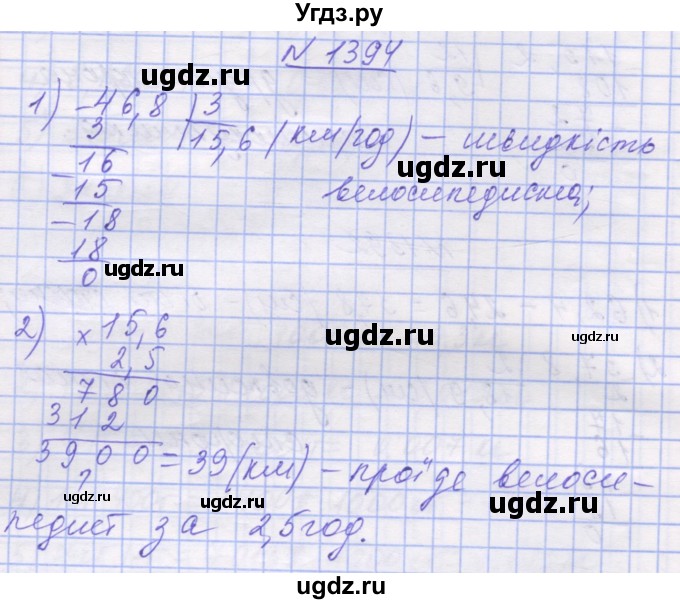 Угдз.ру
N 1394
ugdz.ru
1) -46,8 | 3
3 15,6 (км/год) - швидкість
ugdz.ru
- 16 ugdz.ru
15 велосипедиста;
- 18
ugdz.ru
18
ugdz.ru
0
2) × 15,6
ugdz.ru
ugdz.ru
2,5
780
ugdz.ru
312
3900 = 39 (км) - проїде велоси-
ugdz.ru
педист за 2,5 год.
ugdz.ru
ugdz.ru